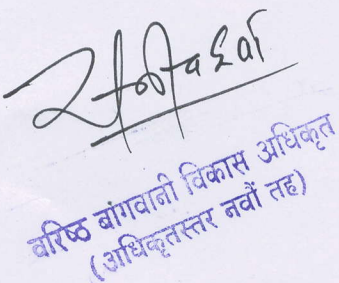 वरिष्ठ बागवानी विकास अधिकृत
(अधिकृतस्तर नवौं तह)